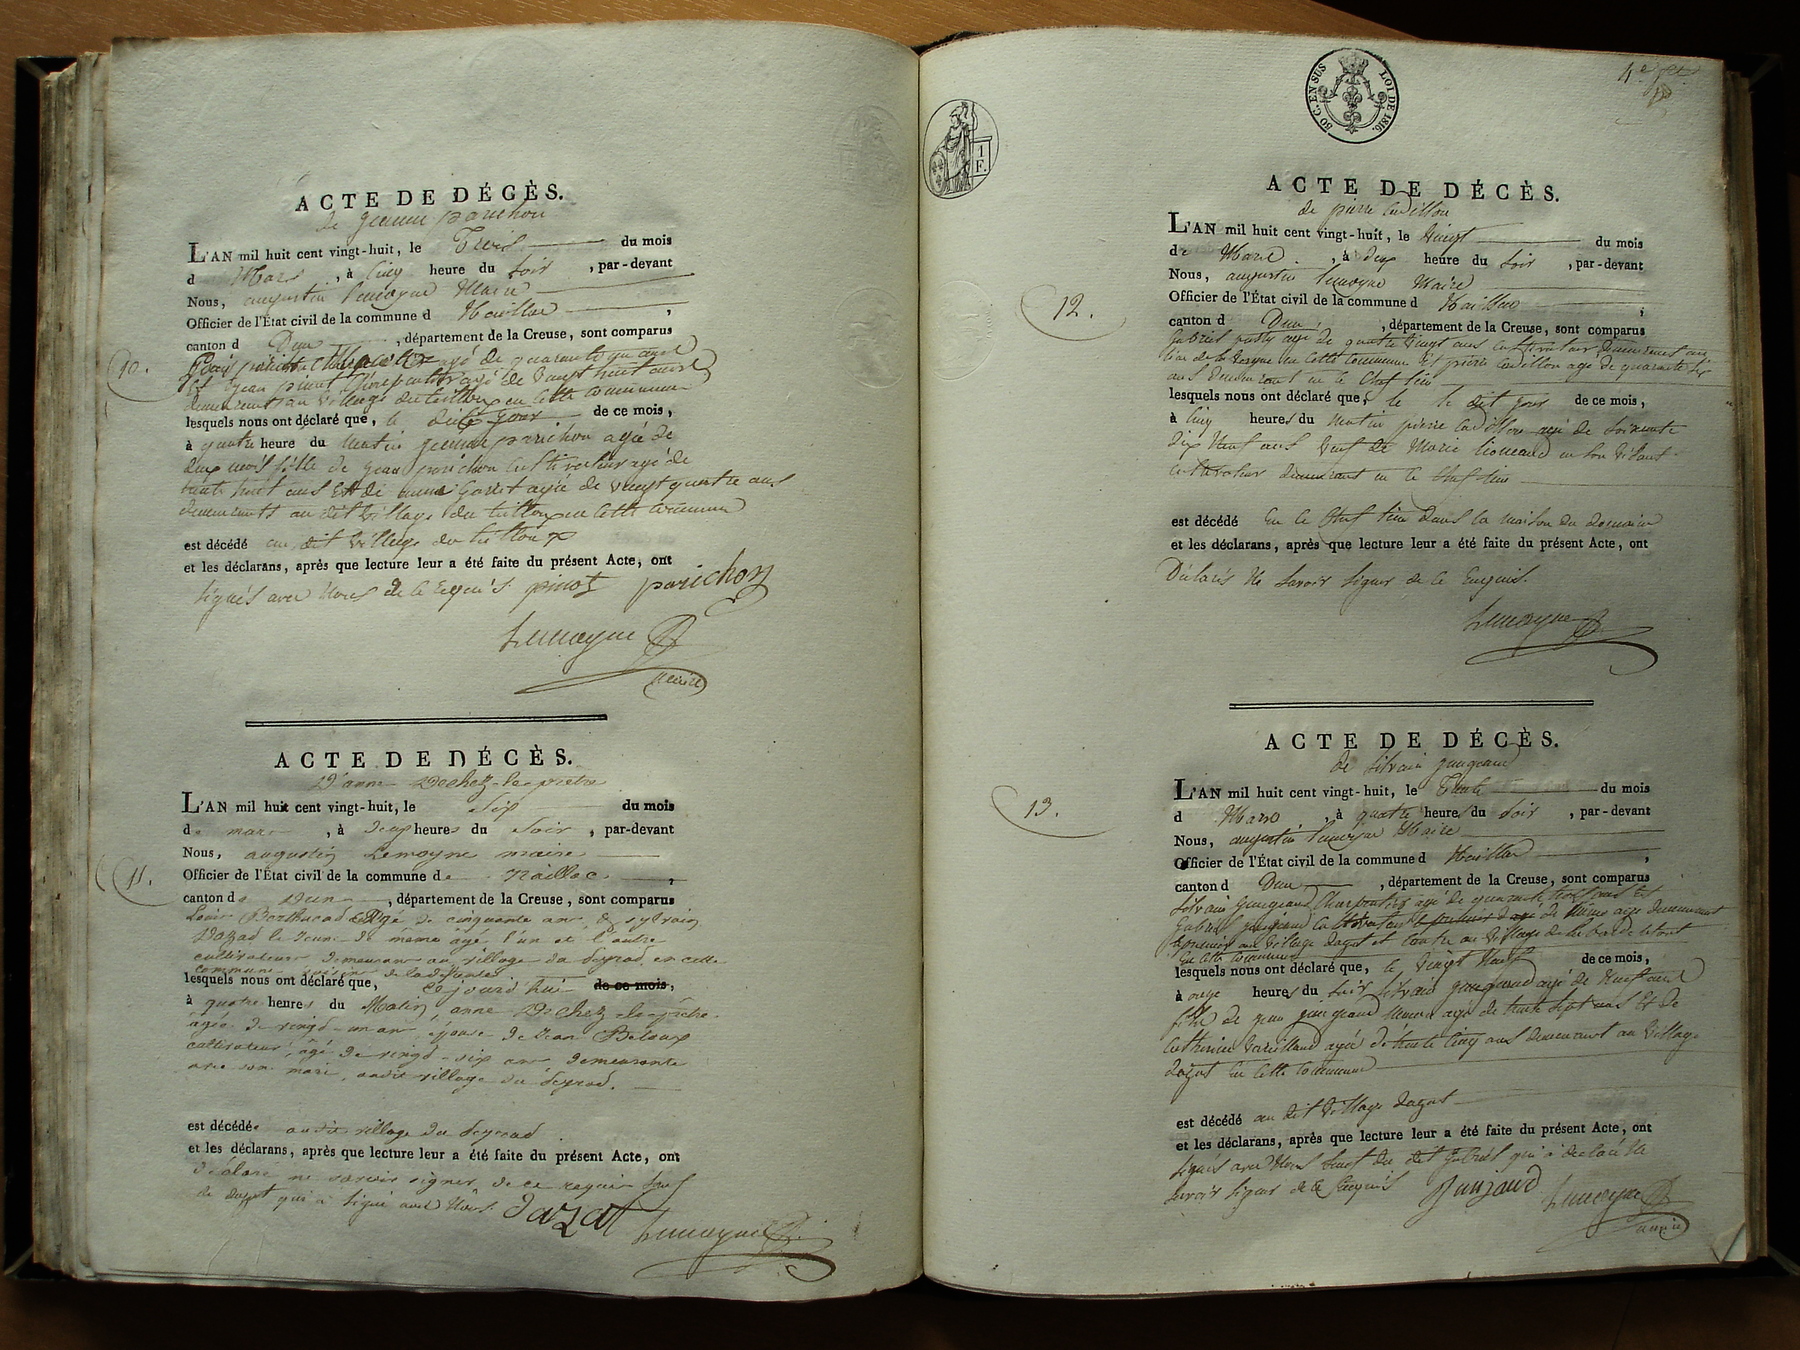 ACTE DE DÉCÈS.
de jeanne parichon
L'AN mil huit cent vingt-huit, le Trois du mois
d Mars, à Cinq heure du Soir, par-devant
Nous, augustin lemoyne Maire
Officier de l'État civil de la commune d Naillac,
canton d Dun, département de la Creuse, sont comparus
10.
agé de quarante un ans
Et jean pinot agé de vingt huit ans
demeurant au village du tillou en cette commune
lesquels nous ont déclaré que, le dit jour de ce mois,
à quatre heure du matin jeanne parichon agée de
deux mois fille de jean parichon cultivateur agé de
trente huit ans Et de anne Gorret agée de vingt quatre ans
demeurants au dit village du tillou en cette commune
est décédé au dit village du tillou
et les déclarans, après que lecture leur a été faite du présent Acte, ont
signés avec Nous de ce Requis. pinot parichon
Lemoyne
maire
ACTE DE DÉCÈS.
D'anne Dechez-le-prêtre
L'AN mil huit cent vingt-huit, le Six du mois
de mars, à deux heures du Soir, par-devant
Nous, augustin Lemoyne maire
Officier de l'État civil de la commune de Naillac,
11.
canton de Dun, département de la Creuse, sont comparus
Louis Berthucad agé de cinquante ans & sylvain
Dazad le Jeune de même âgé l'un et l'autre
cultivateurs demeurans au village du Seyrad, en cette
commune voisins de la défunte
lesquels nous ont déclaré que, cejourd'hui de ce mois,
à quatre heures du Matin, anne Dechez-le-prêtre
âgée de vingt-un an épouse de Jean Beloux
cultivateur, âgé de vingt-six ans demeurante
avec son mari, audit village du Seyrad.
est décédée audit village du Seyrad
et les déclarans, après que lecture leur a été faite du présent Acte, ont
déclaré ne savoir signer de ce requis sauf
le dazat qui a signé avec Nous. Dazat Lemoyne
4e
80 C. EN SUS LOI DE 1816.
1 F.
ACTE DE DÉCÈS.
de pierre Cadillon
L'AN mil huit cent vingt-huit, le Vingt du mois
de Mars, à deux heure du Soir, par-devant
Nous, augustin lemoyne Maire
Officier de l'État civil de la commune d Naillac;
12.
canton d Dun, département de la Creuse, sont comparus
Gabriel agé de quatre vingt ans cultivateur demeurant au
en cette commune Et pierre Cadillon agé de quarante six
ans demeurant en le Chef lieu
lesquels nous ont déclaré que, le dit jour de ce mois,
à Cinq heures du Matin pierre Cadillon agé de soixante
dix Neuf ans Veuf de Marie en son vivant
cultivateur demeurant en le Chef lieu
est décédé En le Chef lieu dans la maison du domaine
et les déclarans, après que lecture leur a été faite du présent Acte, ont
Déclarés Ne savoir signer de ce Enquis.
Lemoyne
ACTE DE DÉCÈS.
de silvain gaujeaud
L'AN mil huit cent vingt-huit, le Trente du mois
d Mars, à quatre heure du Soir, par-devant
13.
Nous, augustin lemoyne Maire
Officier de l'État civil de la commune d Naillac,
canton d Dun, département de la Creuse, sont comparus
Silvain Gaujeaud Charpentier agé de quarante ans Et
Gabriel gaujeaud cultivateur de même age demeurant
le premier au village dazat et l'autre au village
en cette commune
lesquels nous ont déclaré que, le vingt Neuf de ce mois,
à onze heures du Soir silvain gaujeaud agé de Neuf ans
fils de jean gaujeaud agé de trente sept ans Et de
Catherine agée de trente Cinq ans demeurant au village
dazat En cette commune
est décédé au dit village dazat
et les déclarans, après que lecture leur a été faite du présent Acte, ont
signés avec Nous sauf du dit Gabriel qui a declaré Ne
savoir signer de ce Enquis Junjaud Lemoyne
maire